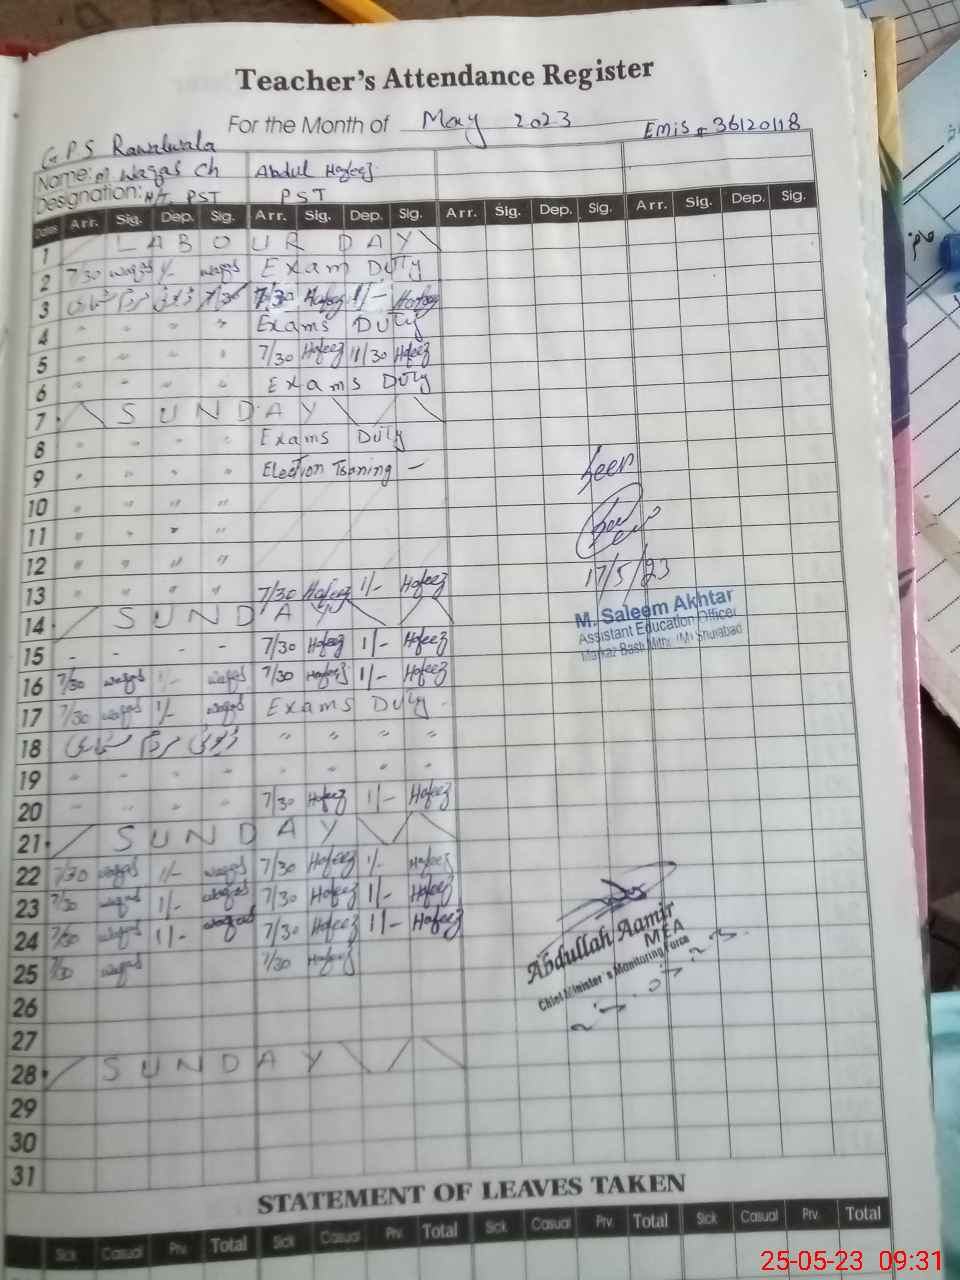 Teacher's Attendance Register
For the Month of May 2023
EMIS # 36120118
GPS Rawalwala
Name: M Waqas Ch Abdul Hafeez
Designation: H/T PST PST
Dates Arr. Sig. Dep. Sig. Arr. Sig. Dep. Sig. Arr. Sig. Dep. Sig. Arr. Sig. Dep. Sig.
1 LABOUR DAY
2 7/30 waqas 1/- waqas Exam Duty
3 ڈیوٹی مردم شماری 7/30 Hafeez 1/- Hafeez
4 " " " " Exams Duty
5 " " " " 7/30 Hafeez 11/30 Hafeez
6 " " " " Exams Duty
7 SUNDAY
8 " " " " Exams Duty
9 " " " " Election Tsaning –
10 " " " "
11 " " " "
12 " " " "
13 " " " " 7/30 Hafeez 1/- Hafeez
14 SUNDAY
15 - - - - 7/30 Hafeez 1/- Hafeez
16 7/30 waqas 1/- waqas 7/30 Hafeez 1/- Hafeez
17 7/30 waqas 1/- waqas Exams Duty
18 ڈیوٹی مردم شماری " " " "
19 " " " " " " " "
20 " " " " 7/30 Hafeez 1/- Hafeez
21 SUNDAY
22 7/30 waqas 1/- waqas 7/30 Hafeez 1/- Hafeez
23 7/30 waqas 1/- waqas 7/30 Hafeez 1/- Hafeez
24 7/30 waqas 1/- waqas 7/30 Hafeez 1/- Hafeez
25 7/30 waqas 7/30 Hafeez
26
27
28 SUNDAY
29
30
31
Seen
17/5/23
M. Saleem Akhtar
Assistant Education Officer
Markaz Basti Mithu (M) Shujabad
Abdullah Aamir
MEA
Chief Minister's Monitoring Force
STATEMENT OF LEAVES TAKEN
Sick Casual Prv. Total Sick Casual Prv. Total Sick Casual Prv. Total Sick Casual Prv. Total
25-05-23 09:31